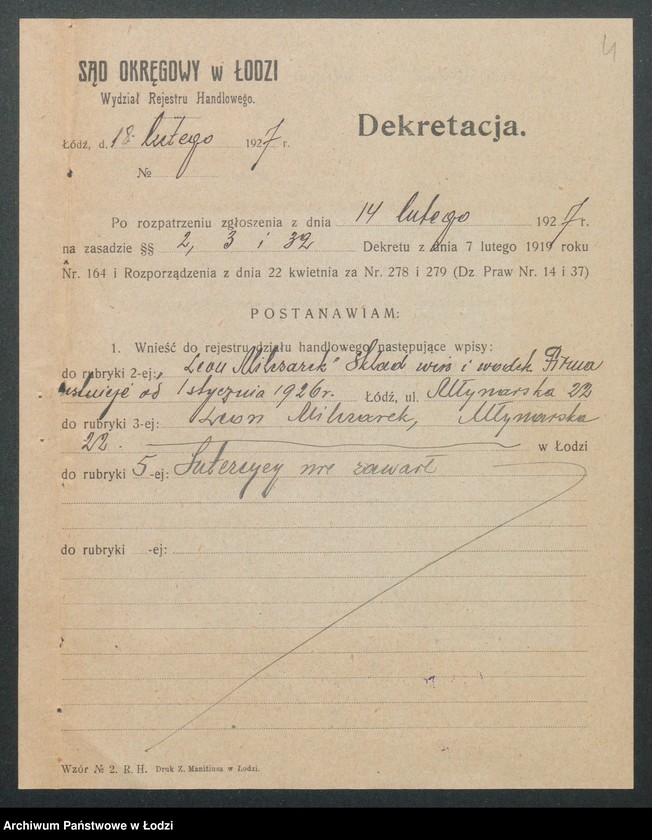 4
SĄD OKRĘGOWY w ŁODZI
Wydział Rejestru Handlowego.
Dekretacja.
Łódź, d. 18 lutego 1927 r.
№
Po rozpatrzeniu zgłoszenia z dnia 14 lutego 1927 r.
na zasadzie §§ 2, 3 i 32 Dekretu z dnia 7 lutego 1919 roku
Nr. 164 i Rozporządzenia z dnia 22 kwietnia za Nr. 278 i 279 (Dz Praw Nr. 14 i 37)
POSTANAWIAM:
1. Wnieść do rejestru działu handlowego następujące wpisy:
do rubryki 2-ej: „Leon Milczarek" Skład win i wódek Firma
istnieje od 1 stycznia 1926 r. Łódź, ul. Młynarska 22
do rubryki 3-ej: Leon Milczarek, Młynarska
22. w Łodzi
do rubryki 5-ej: Intercyzy nie zawarł
do rubryki -ej:
Wzór № 2. R. H. Druk Z. Manitiusa w Łodzi.
Archiwum Państwowe w Łodzi